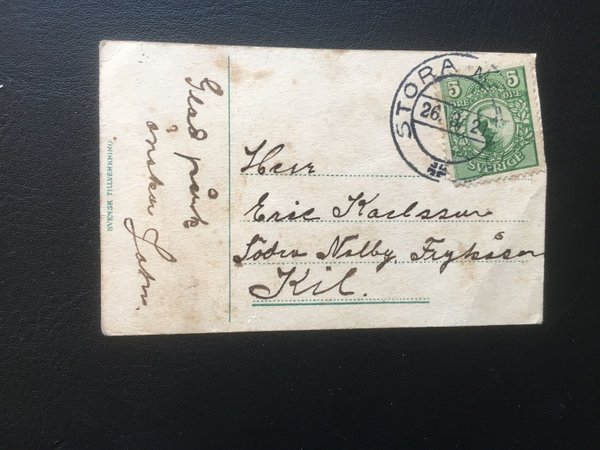 Glad påsk
önskar
SVENSK TILLVERKNING
STORA
26.
5 5
ÖRE ÖRE
SVERIGE
Herr
Eric Karlsson
Södra Nolby, Frykåsen
Kil.